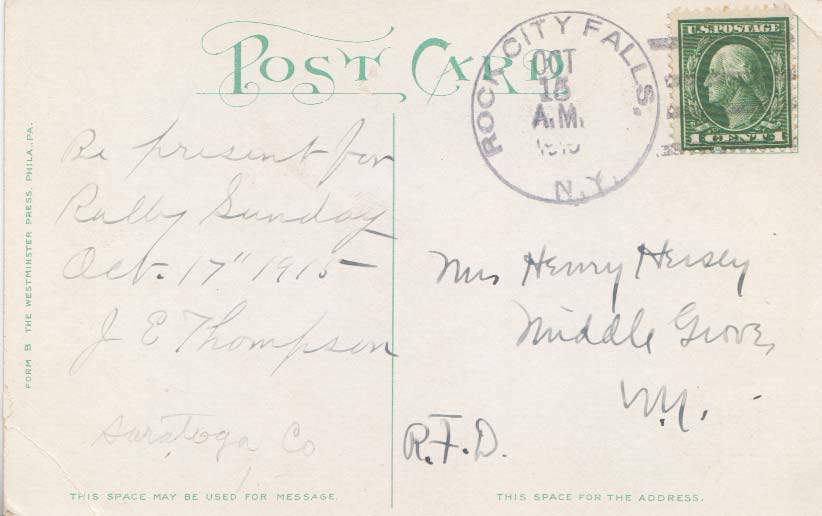 POST CARD
ROCK CITY FALLS,
OCT
15
A.M.
1915
N.Y.
U.S. POSTAGE
1 CENT 1
FORM B THE WESTMINSTER PRESS, PHILA., PA.
Be present for
Rally Sunday
Oct. 17" 1915
J E Thompson
Saratoga Co
THIS SPACE MAY BE USED FOR MESSAGE.
Mrs Henry Hersey
Middle Grove,
N.Y.
R.F.D.
THIS SPACE FOR THE ADDRESS.